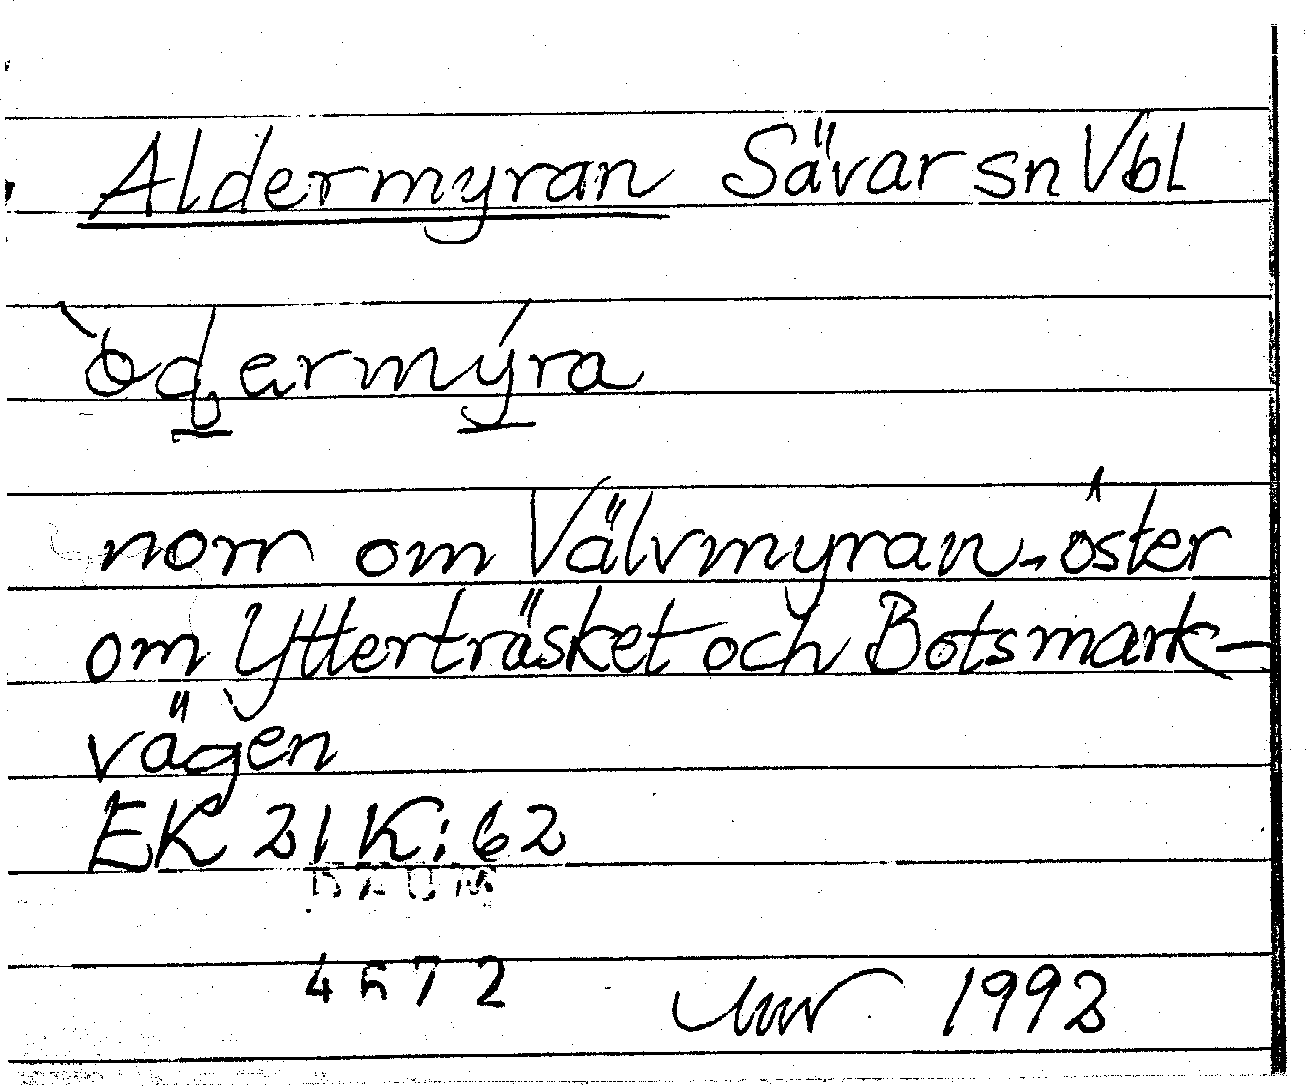 Aldermyran Sävar sn Vbl
norr om Välvmyran, öster
om Ytterträsket och Botsmark-
vägen
EK 21 K: 62
DAUM
4672
1992